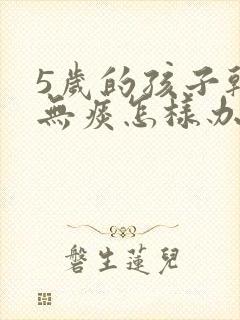 5歲的孩子乾
無痰怎樣办
磐生蓮兒